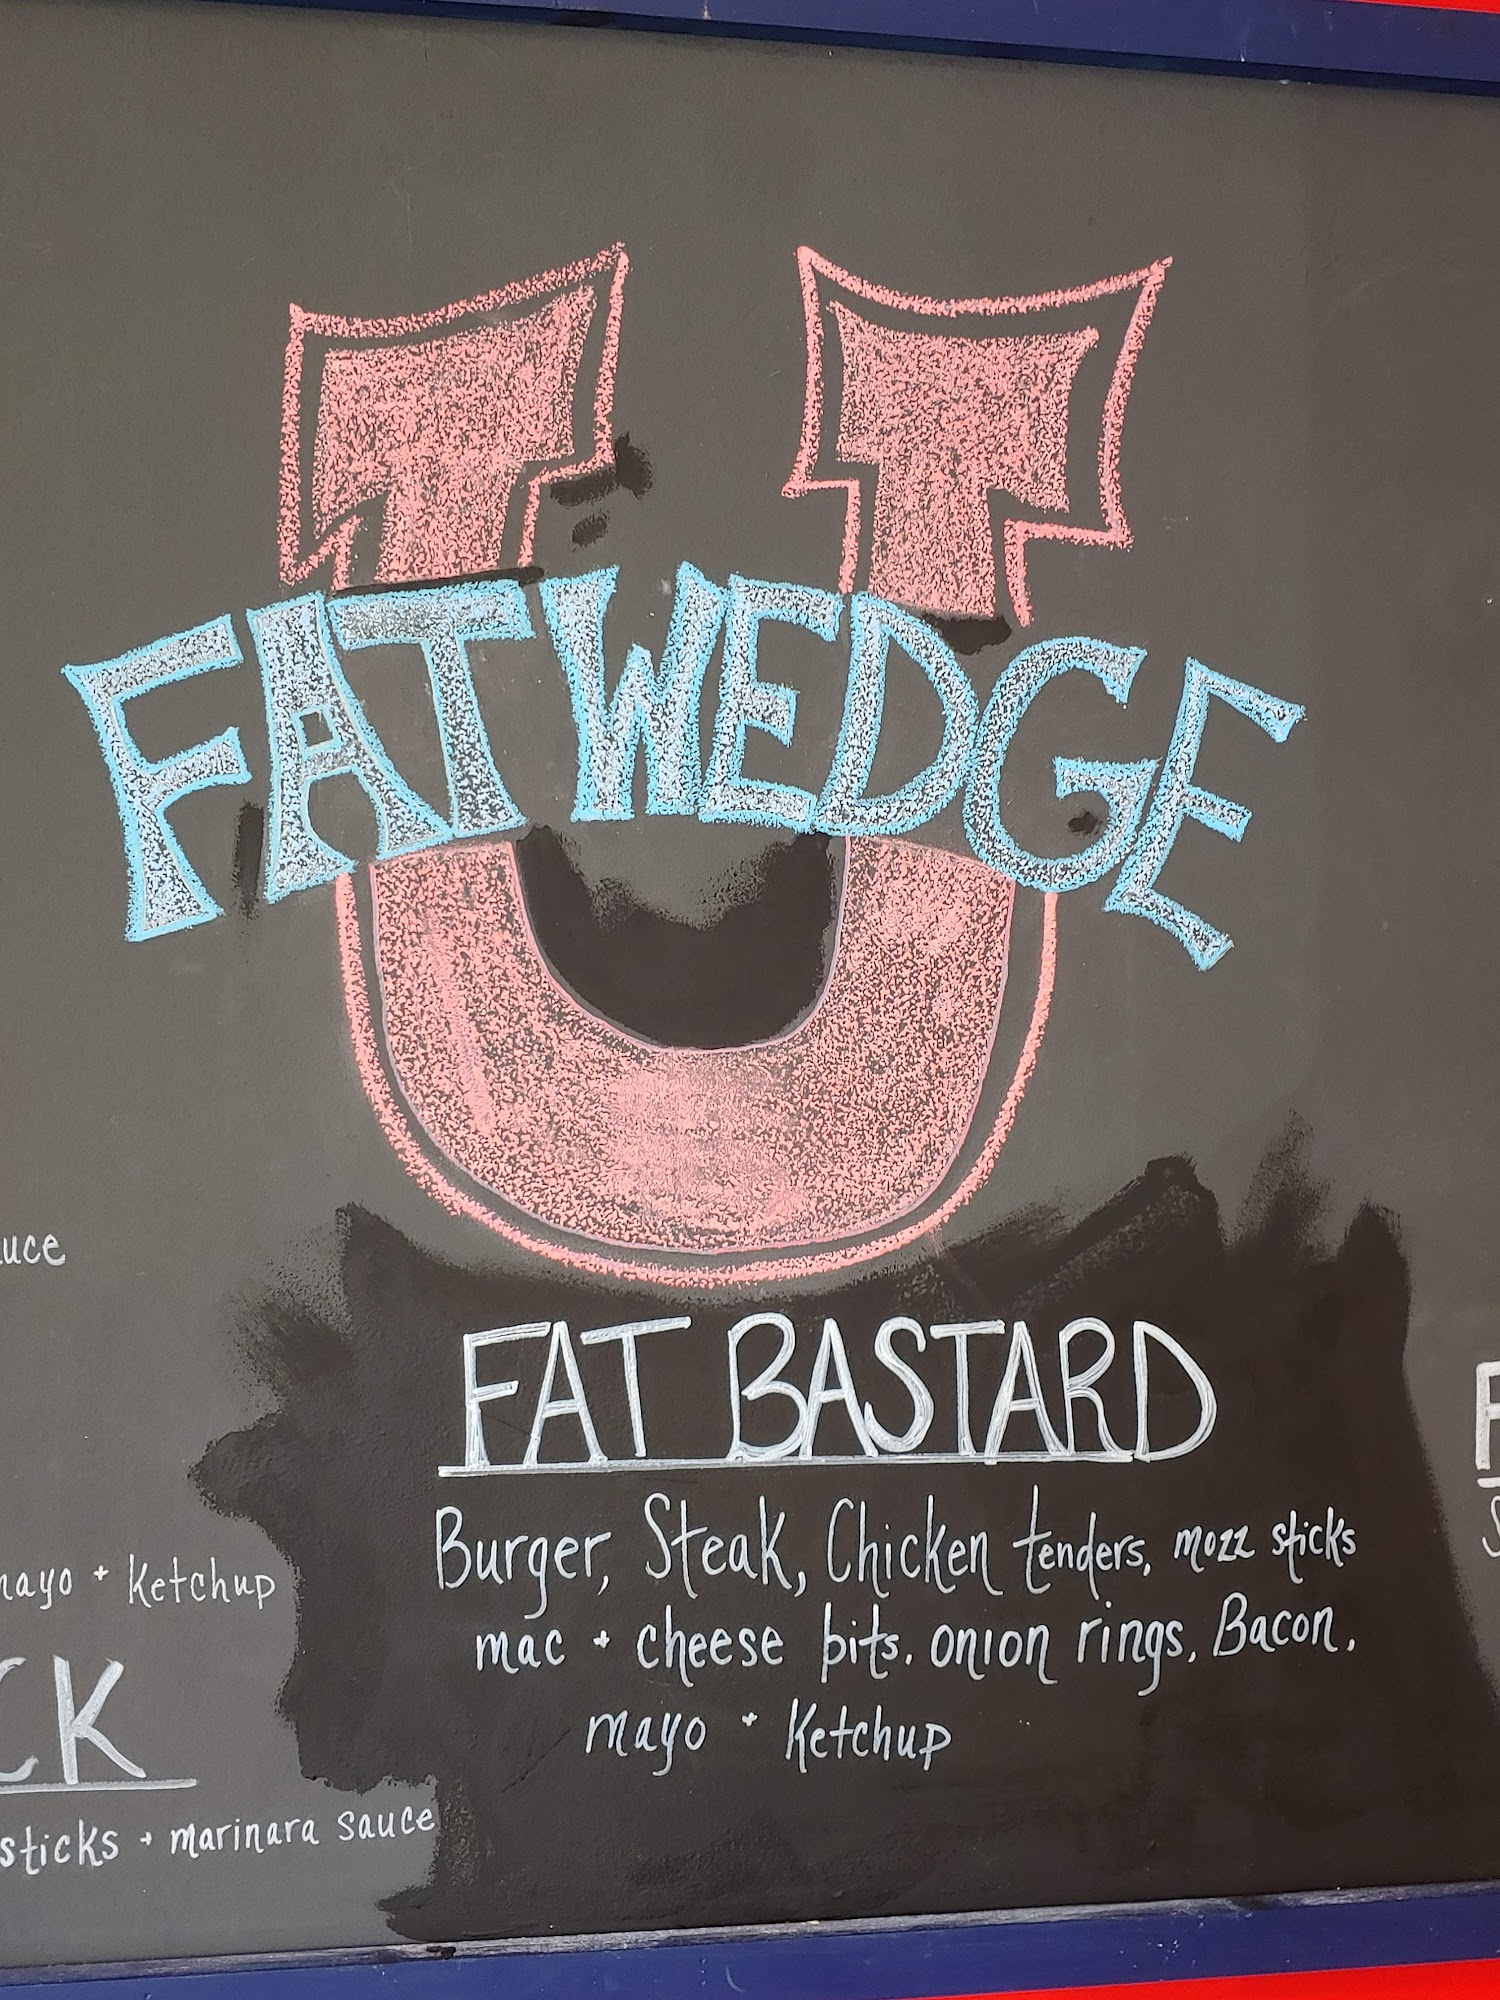 U
FAT WEDGE
FAT BASTARD
Burger, Steak, Chicken tenders, mozz sticks
mac + cheese bits, onion rings, Bacon,
mayo + Ketchup
mayo + Ketchup
CK
sticks + marinara sauce